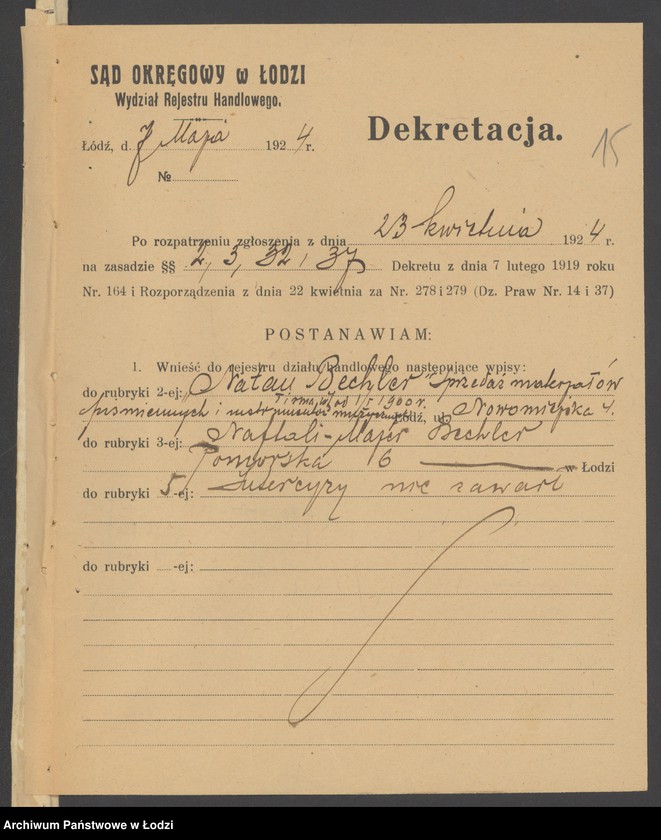 SĄD OKRĘGOWY w ŁODZI
Wydział Rejestru Handlowego.
Łódź, d. 7 Maja 1924 r.
№
Dekretacja.
15
Po rozpatrzeniu zgłoszenia z dnia 23 kwietnia 1924 r.
na zasadzie §§ 2, 3, 32, 37 Dekretu z dnia 7 lutego 1919 roku
Nr. 164 i Rozporządzenia z dnia 22 kwietnia za Nr. 278 i 279 (Dz. Praw Nr. 14 i 37)
POSTANAWIAM:
1. Wnieść do rejestru działu handlowego następujące wpisy:
do rubryki 2-ej: „Natan Bechler" sprzedaż materjałów
piśmiennych i instrumentów muzycznych Łódź, ul. Nowomiejska 4.
Firma istn. od 1/I 1900 r.
do rubryki 3-ej: Naftali-Majer Bechler
Pomorska 6 w Łodzi
do rubryki 5-ej: Intercyzy nie zawarł
do rubryki -ej:
Archiwum Państwowe w Łodzi